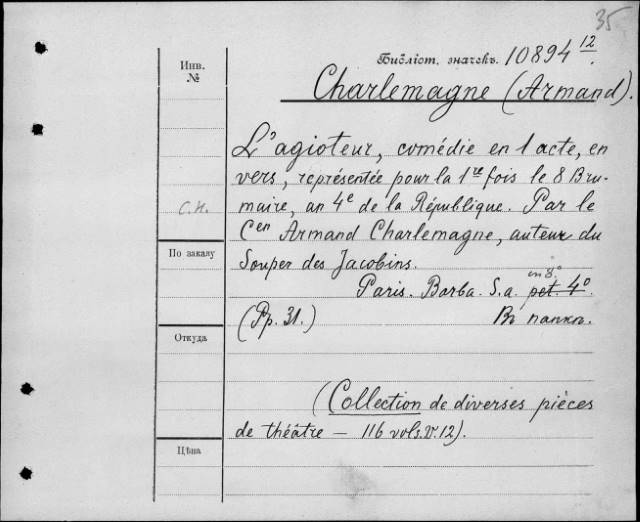 35
Инв.
№
Библіот. значекъ. 10894 12.
Charlemagne (Armand).
L'agioteur, comédie en 1 acte, en
vers, représentée pour la 1re fois le 8 Bru-
maire, an 4e de la République. Par le
С.К.
Cen Armand Charlemagne, auteur du
По заказу
Souper des Jacobins.
in 8°
Paris. Barba. S.a. pet. 4°
(Pp. 31.) Въ папкѣ.
Откуда
(Collection de diverses pièces
de théâtre — 116 vols. V. 12).
Цѣна